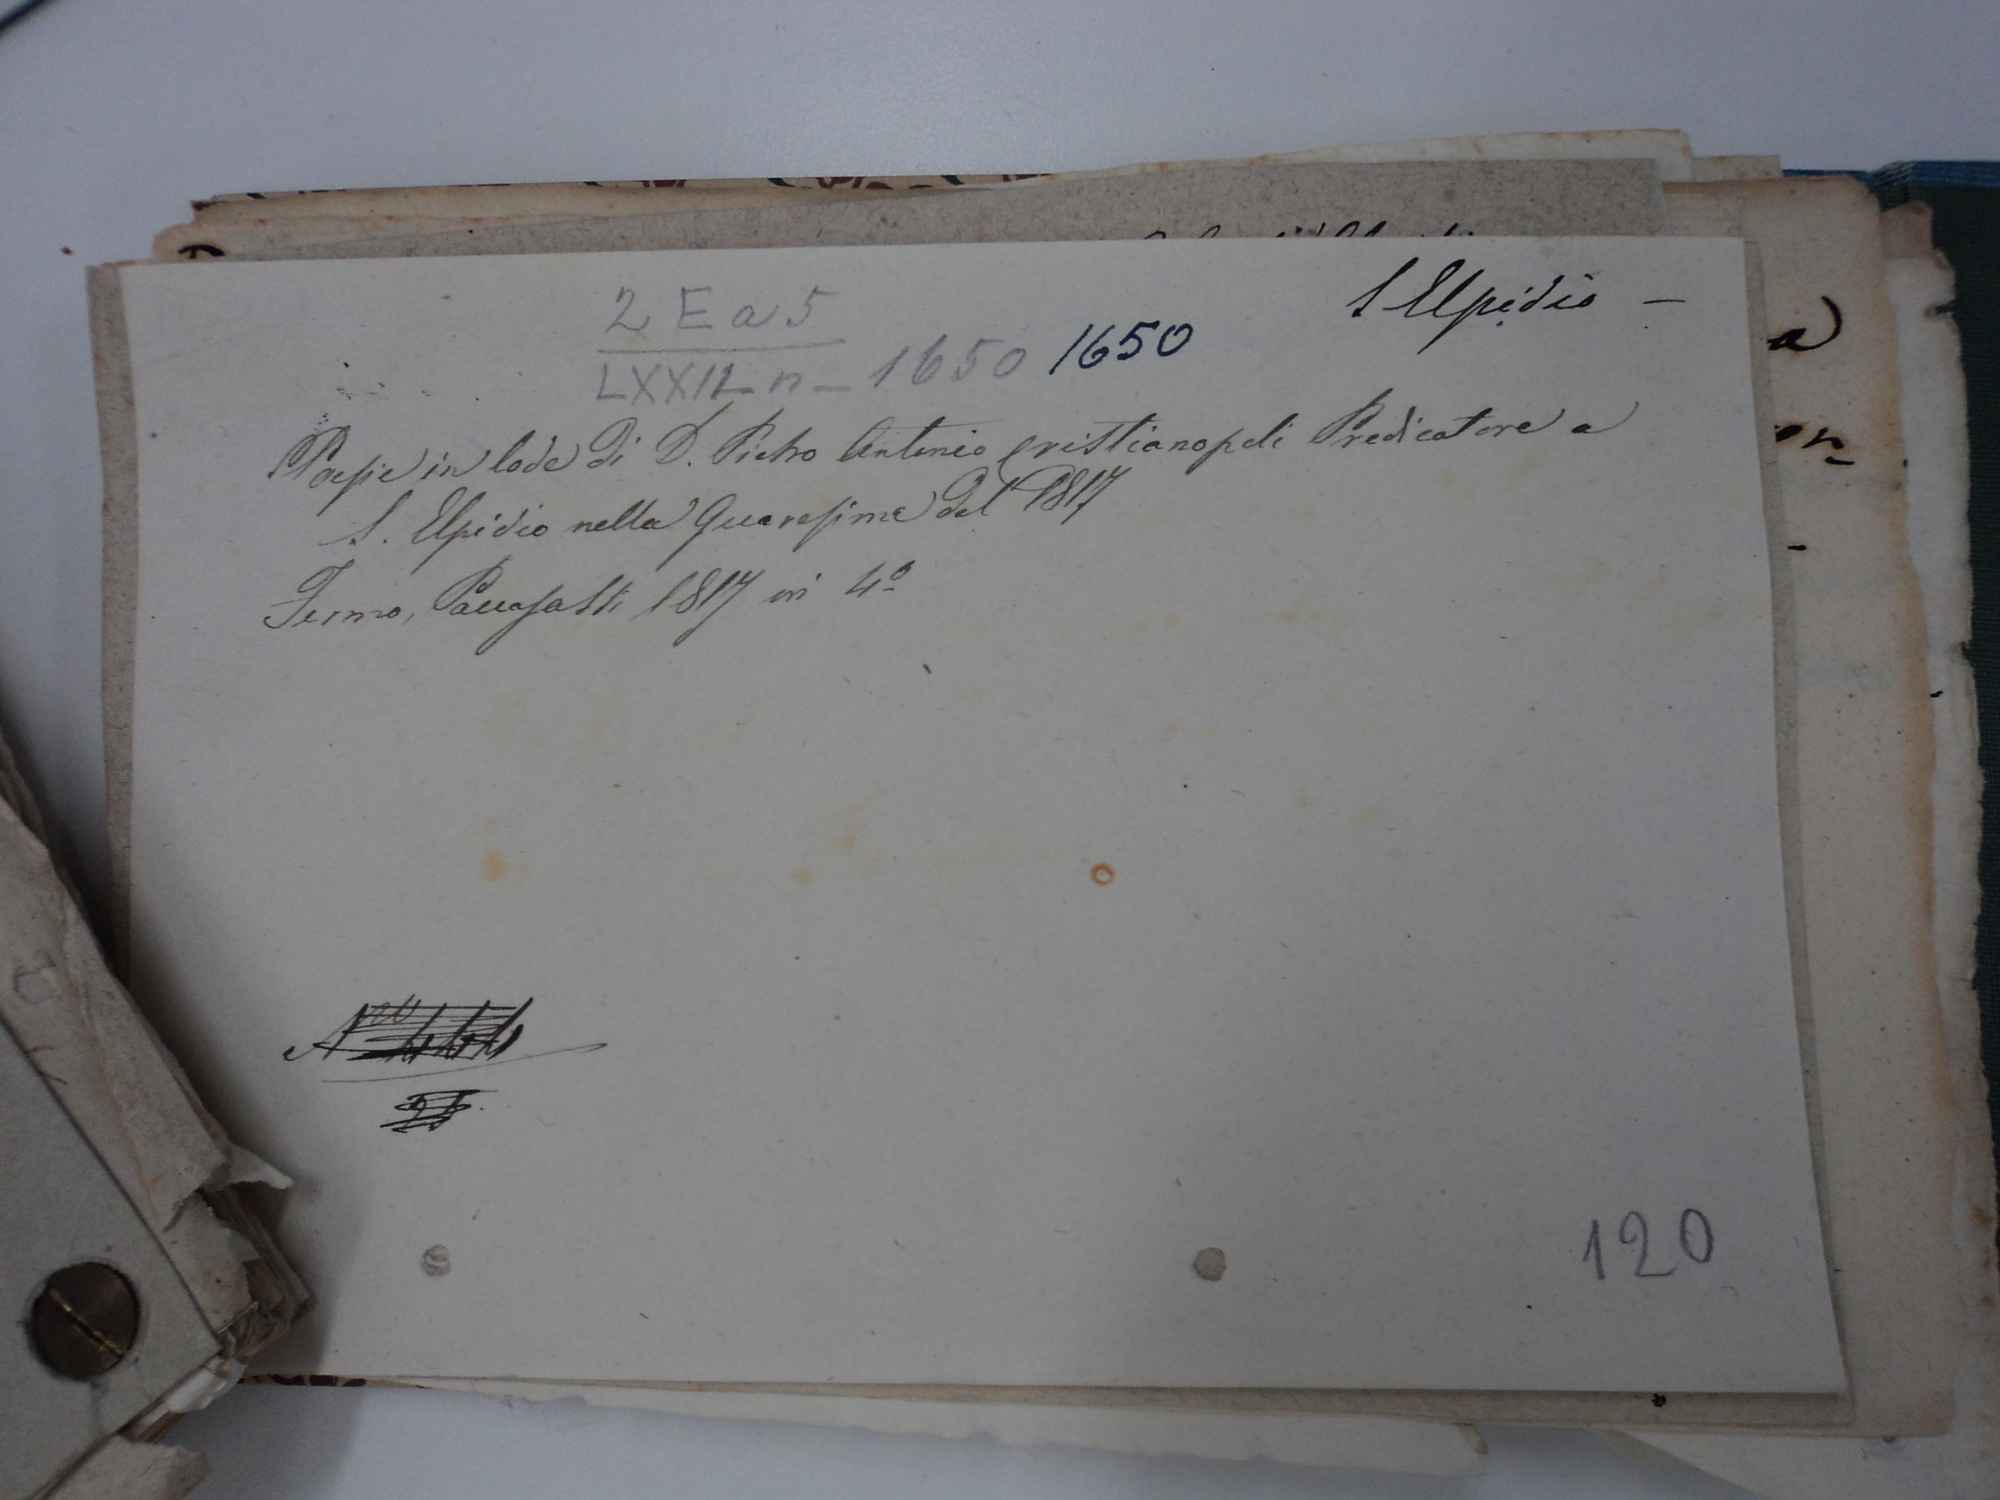 S Elpidio —
2 E a 5
LXXII n- 1650 1650
Poesie in lode di D. Pietro Antonio Cristianopoli Predicatore a
S. Elpidio nella Quaresima del 1817
Fermo, Paccasassi 1817 in 4º
120